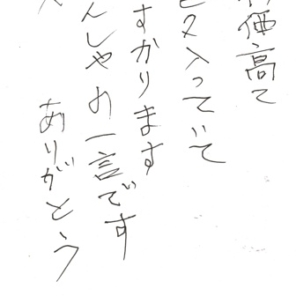 価高て
入っていて
すかります
んしゃの一言です
ありがとう